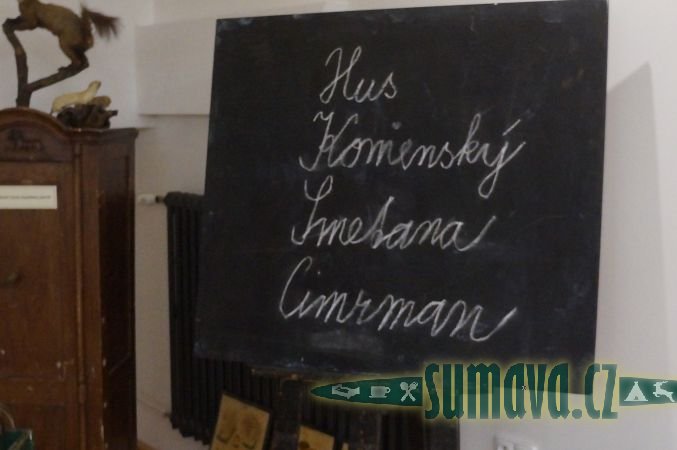 Hus
Komenský
Smetana
Cimrman
sumava.cz